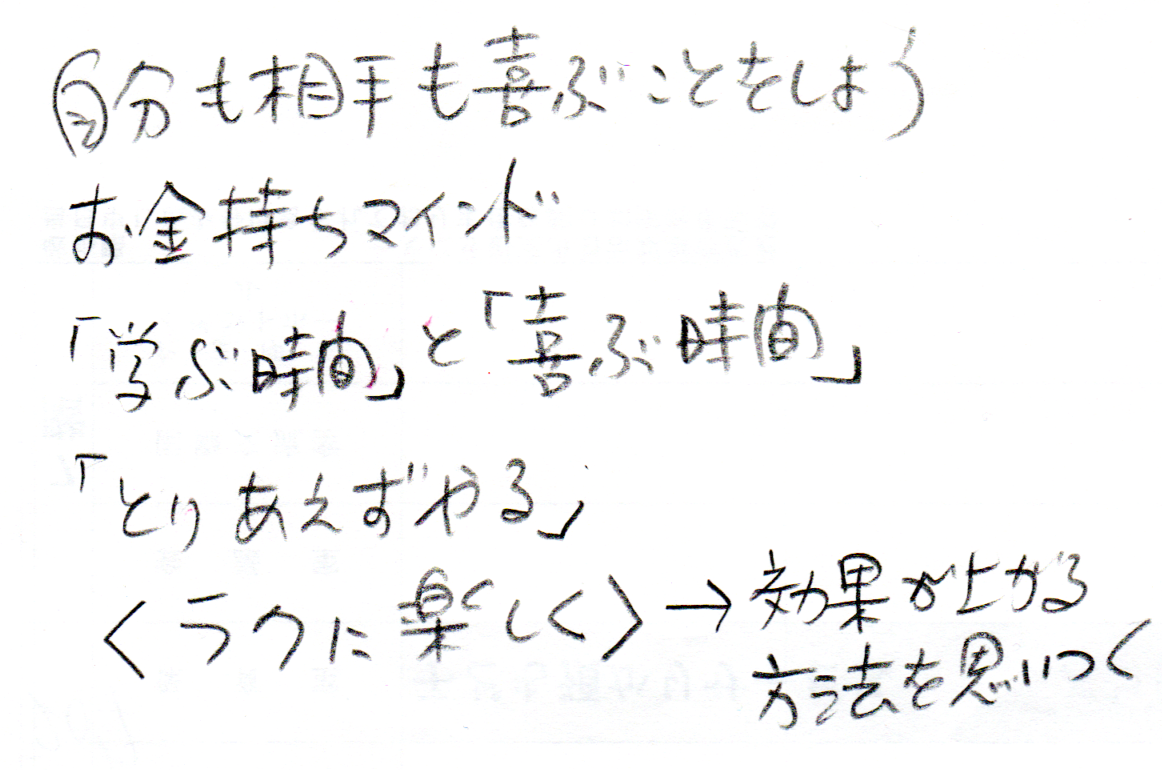 自分も相手も喜ぶことをしよう
お金持ちマインド
「学ぶ時間」と「喜ぶ時間」
「とりあえずやる」
〈ラクに楽しく〉→効果が上がる
方法を思いつく